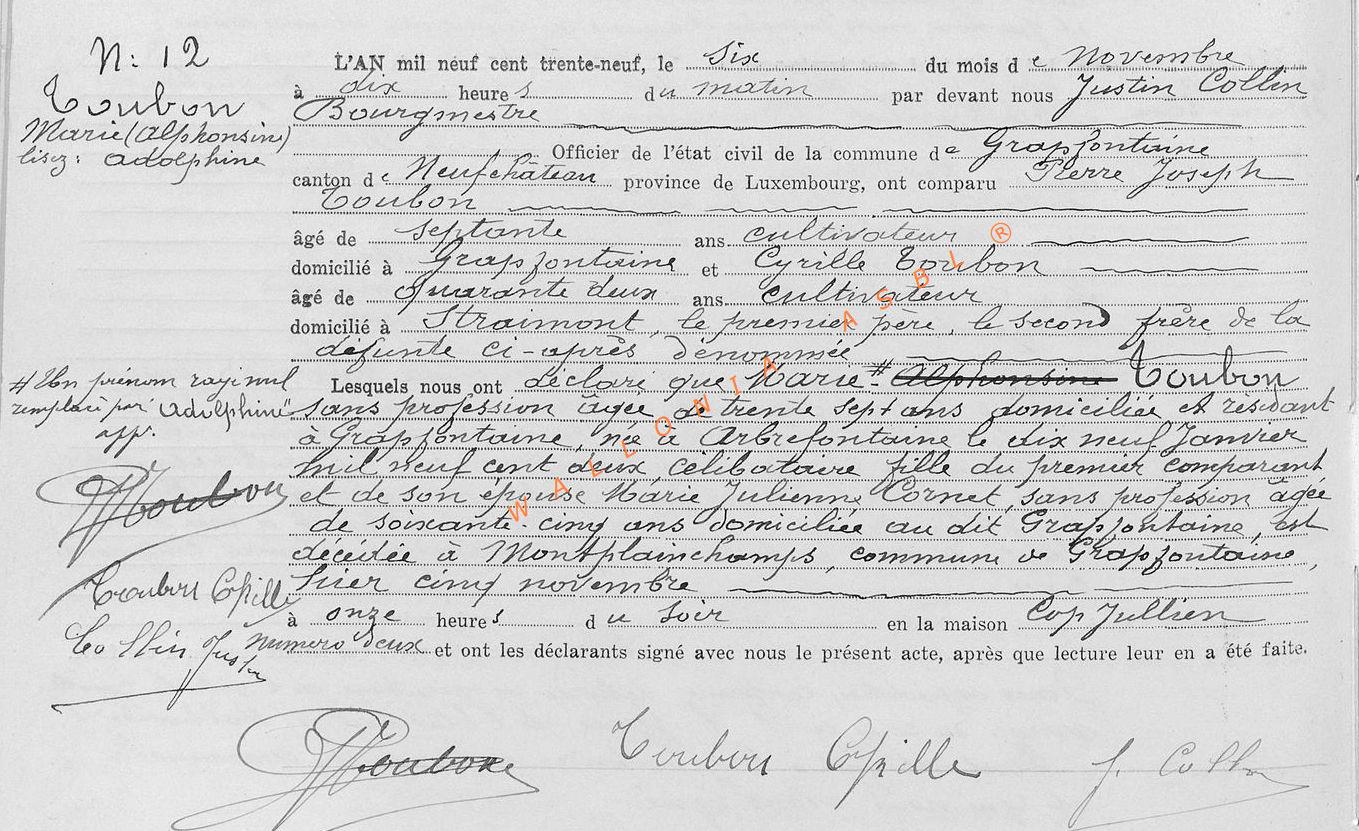 N: 12
Toubon
Marie (Alphonsin)
lisez: Adolphine
L'AN mil neuf cent trente-neuf, le six du mois de Novembre
à dix heures du matin par devant nous Justin Collin
Bourgmestre
Officier de l'état civil de la commune de Grapfontaine
canton de Neufchâteau province de Luxembourg, ont comparu Pierre Joseph
Toubon
âgé de septante ans cultivateur
domicilié à Grapfontaine et Cyrille Toubon
âgé de Quarante deux ans cultivateur
domicilié à Straimont, le premier père, le second frère de la
défunte ci-après dénommée
Lesquels nous ont déclaré que Marie # Alphonsine Toubon
sans profession âgée de trente sept ans domiciliée et résidant
à Grapfontaine, née à Arbrefontaine le dix neuf Janvier
mil neuf cent deux, célibataire fille du premier comparant
et de son épouse Marie Julienne Cornet, sans profession âgée
de soixante-cinq ans domiciliée au dit Grapfontaine, est
décédée à Montplainchamps, commune de Grapfontaine,
hier cinq novembre
à onze heures du soir en la maison Cop Jullien
numero deux et ont les déclarants signé avec nous le présent acte, après que lecture leur en a été faite.
# Un prénom rayé nul
remplacé par "Adolphine"
app.
Toubon
Toubon Cyrille
Collin Justin
Toubon
Toubon Cyrille
J. Collin
WALLONIA ASBL ®